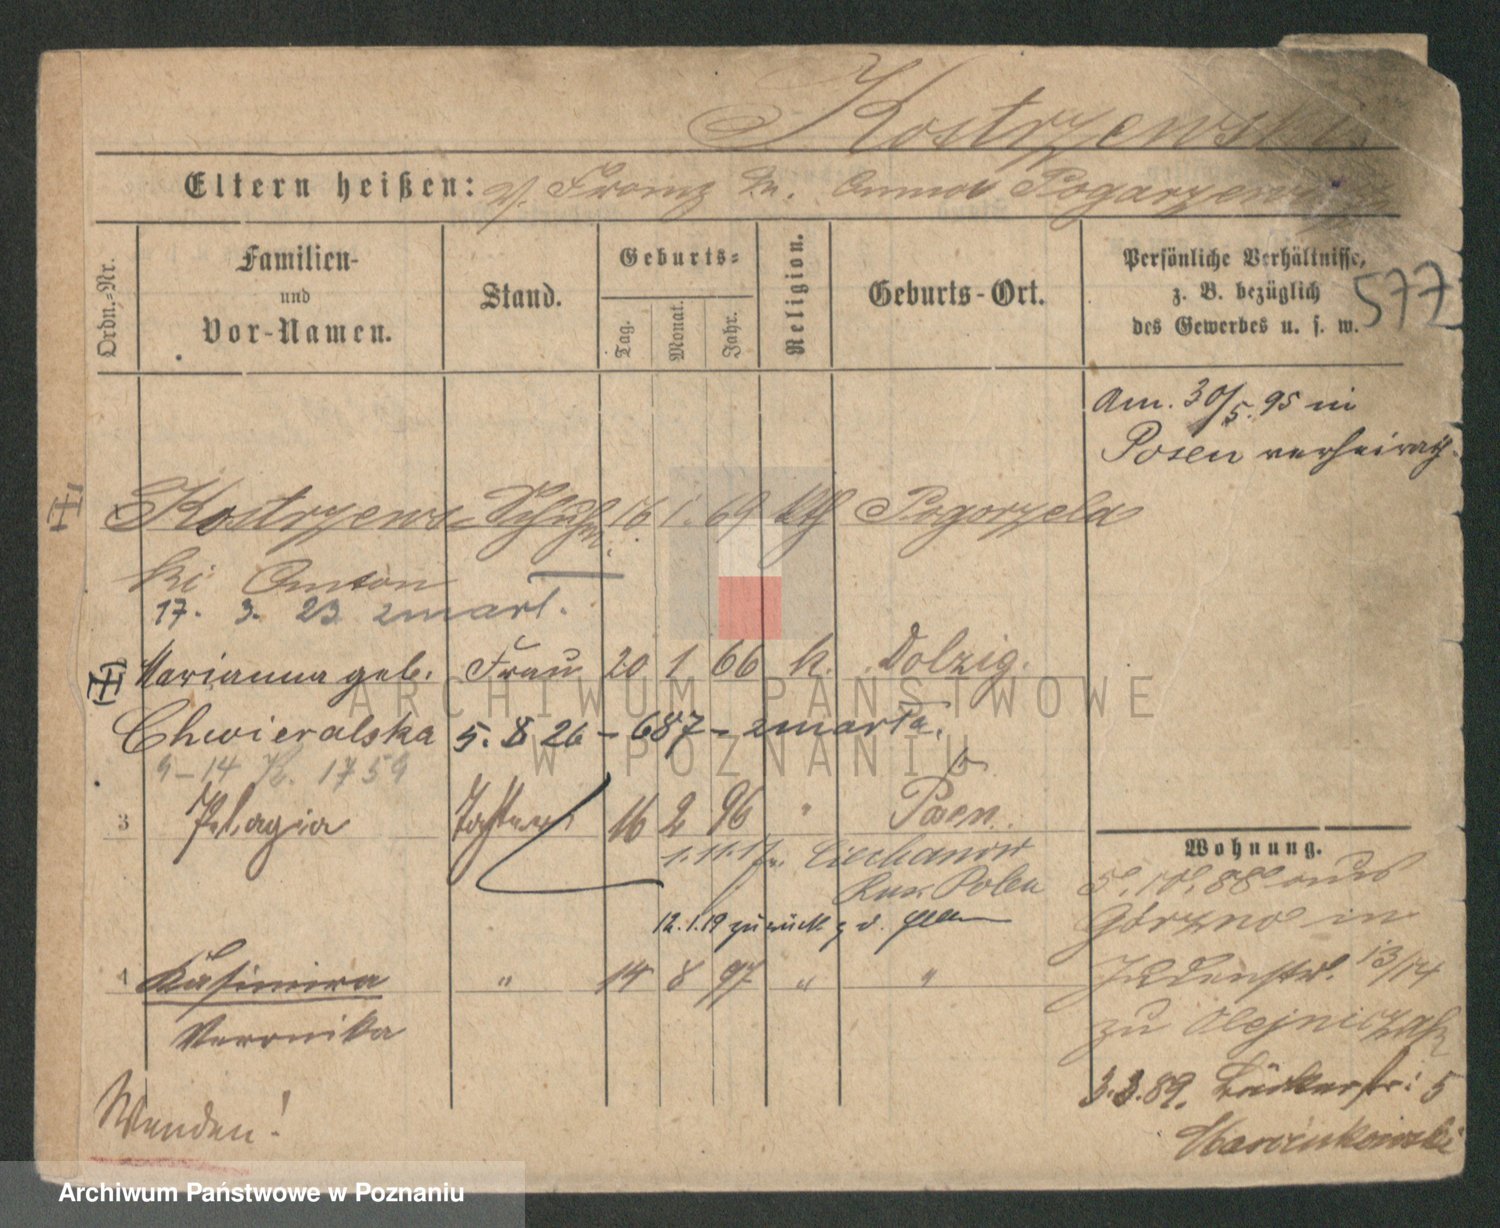 Kostrzewski
Eltern heißen: V. Franz u. Anna Pogarzewska
Ordn.-Nr.
Familien-
und
Vor-Namen.
Stand.
Geburts-
Tag.
Monat.
Jahr.
Religion.
Geburts-Ort.
Persönliche Verhältnisse,
z. B. bezüglich
des Gewerbes u. s. w.
577
Am. 30/5. 95 in
Posen verheirath.
Kostrzews- Schuhm. 16 1. 69 kth Pogorzela
ki Anton
17. 3. 23 zmarł.
Marianna geb. Frau 20 1 66 k. Dolzig.
Chwieralska 5. 8 26 - 687 - zmarła.
9-14 K. 1759
3 Pelagia Tochter 16 2 96 " Posen.
1.11.17 n. Ciechanow
Russ. Polen
12.1.19 zurück z. d.
4 Kasimira " 14 8 97 " "
Veronika
Wenden!
Wohnung.
5. 10. 88 aus
Górzno in
Judenstr. 13/14
zu Olejniczak
3.3.89. Bäckerstr: 5
Marcinkowski
ARCHIWUM PAŃSTWOWE
W POZNANIU
Archiwum Państwowe w Poznaniu